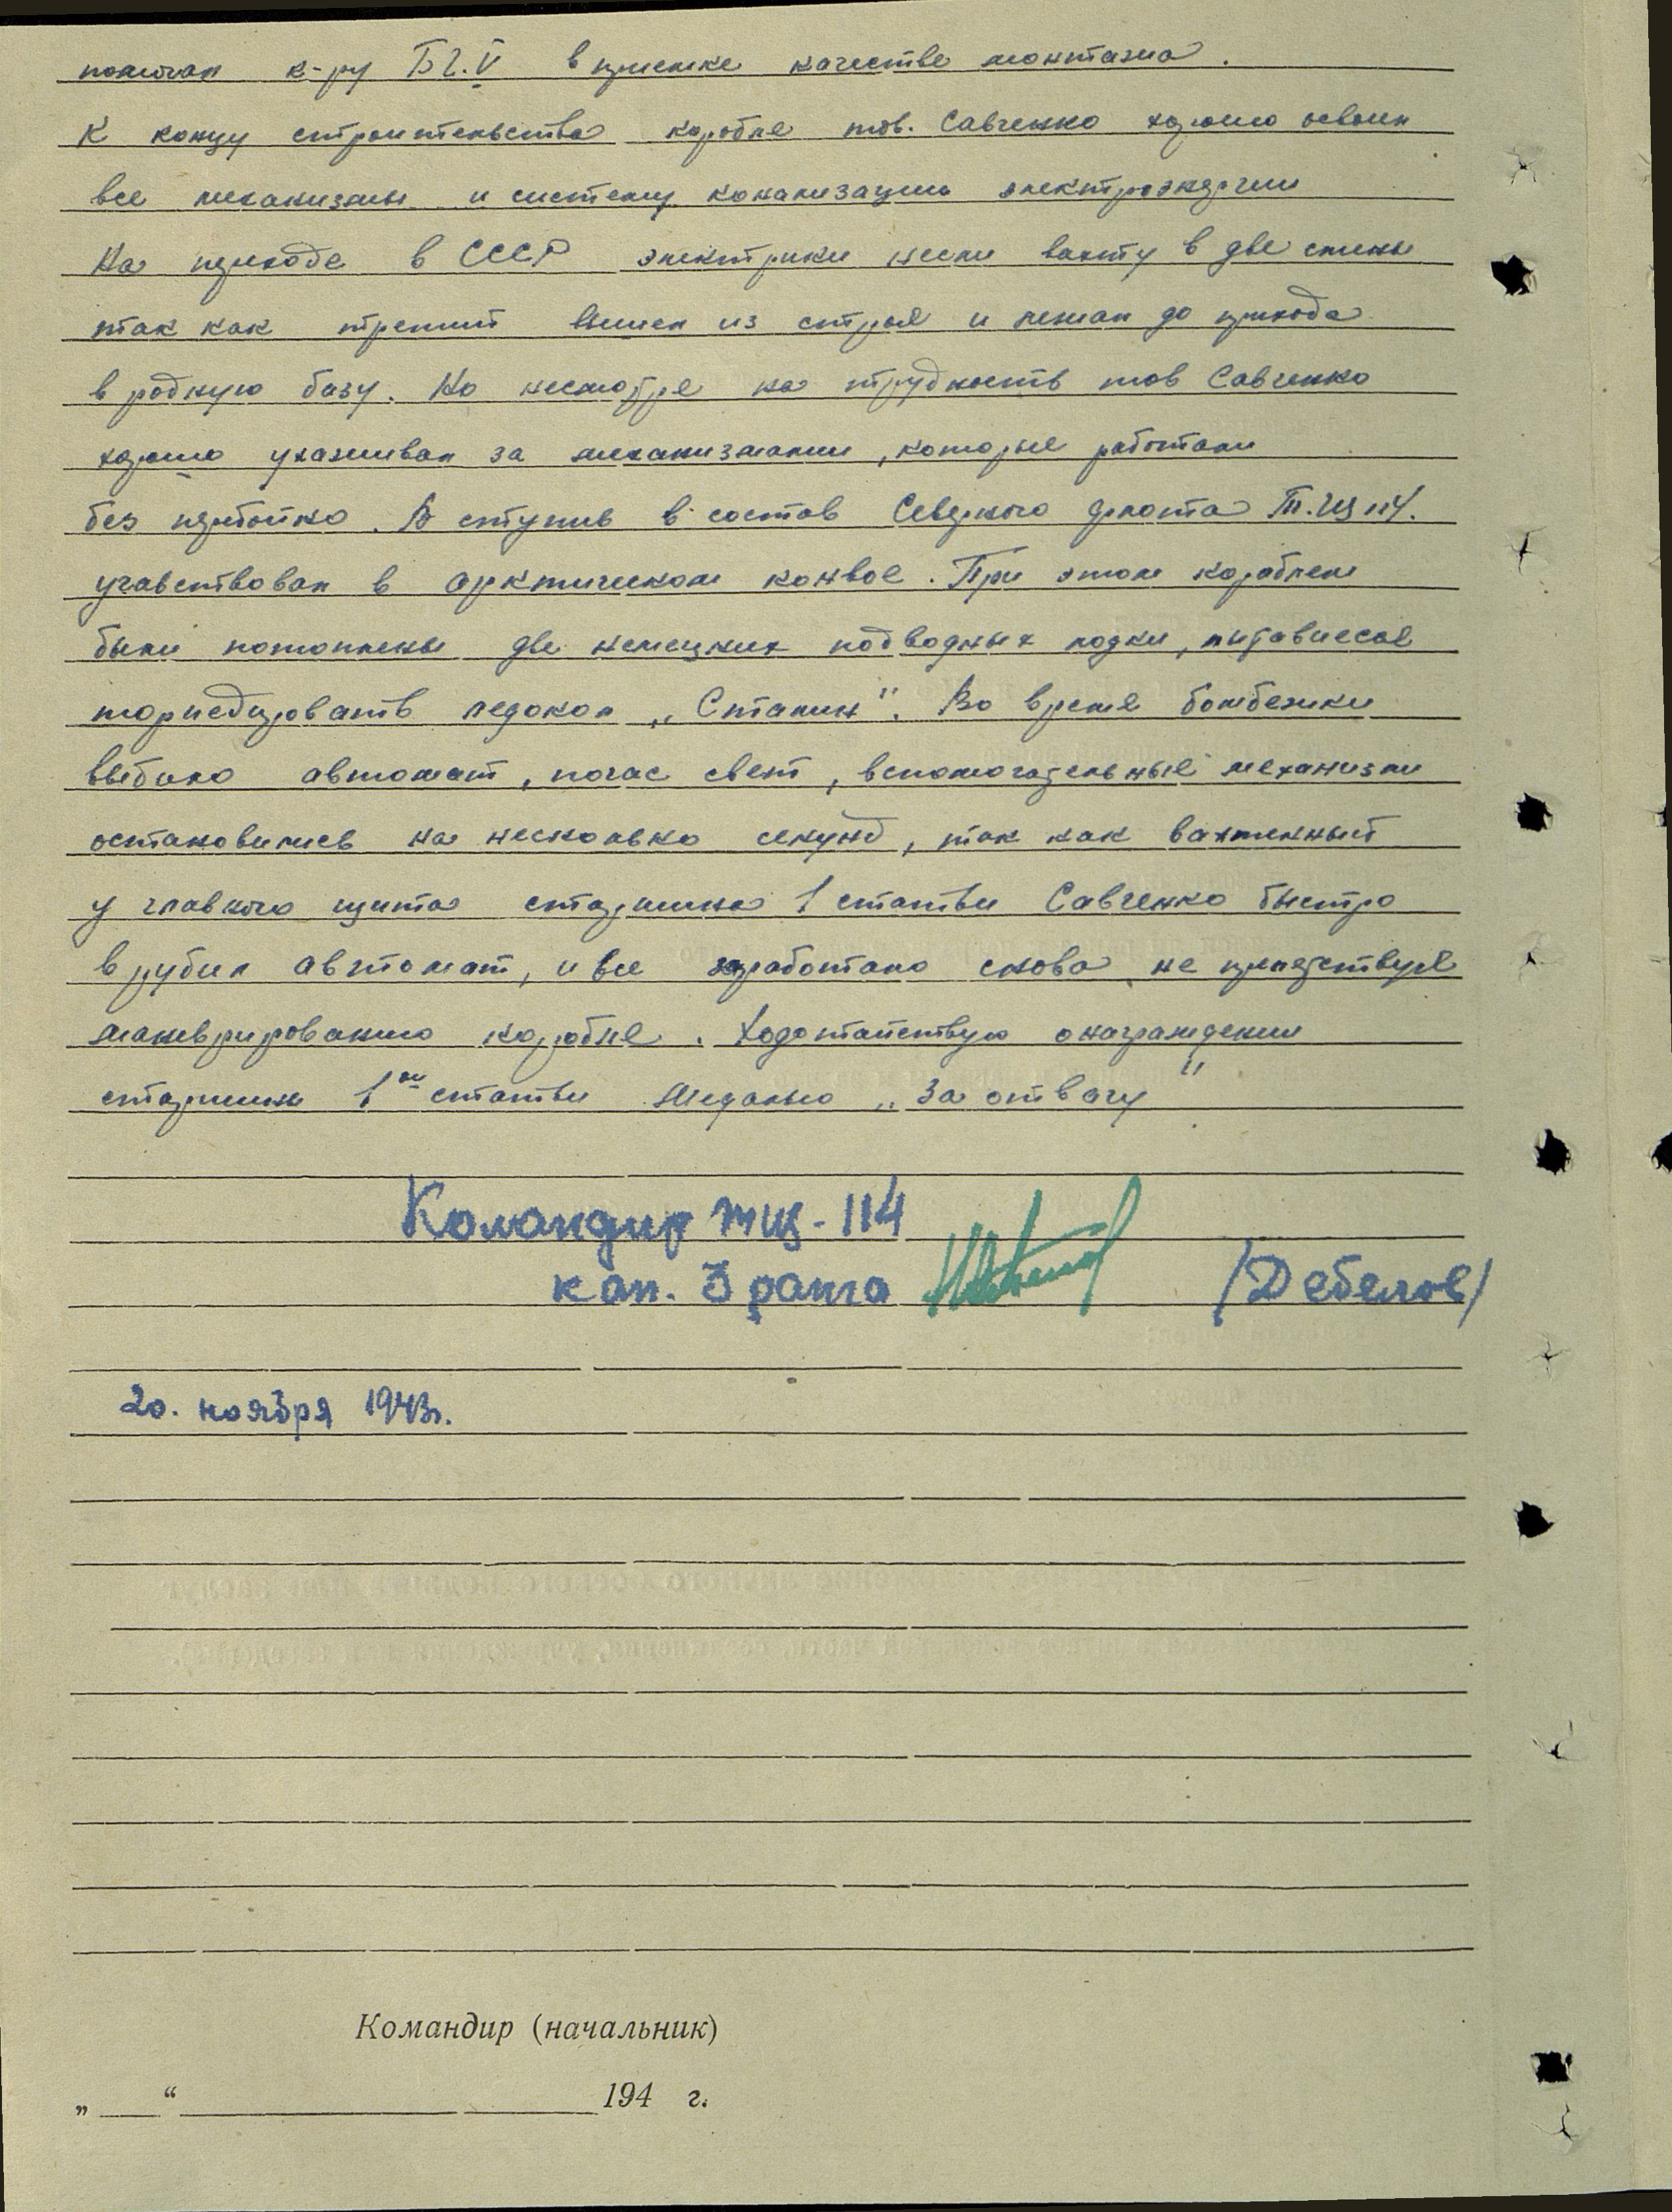 помогал к-ру БЧ.V в приемке качестве монтажа.
К концу строительства корабля тов. Савченко хорошо освоил
все механизмы и систему канализации электроэнергии
На приходе в СССР электрики несли вахту в две смены
так как третий вышел из строя и лежал до прихода
в родную базу. Но несмотря на трудность тов Савченко
хорошо ухаживал за механизмами, которые работали
без перебойно. В ступив в состав Северного флота Т.Щ 114.
учавствовал в арктическом конвое. При этом кораблем
были потоплены две немецких подводных лодки, пытавиеся
торпедировать ледокол „Сталин". Во время бомбежки
выбило автомат, погас свет, вспомогательные механизмы
остановились на несколько секунд, так как вахтенный
у главного щита старшина 1 статьи Савченко быстро
врубил автомат, и все заработало снова не препятствуя
маневрированию корабля. Ходотайствую о награждении
старшины 1ой статьи Медалью „За отвагу"
Командир ТЩ-114
кап. 3 ранга /Дебелов/
20. ноября 1943г.
Командир (начальник)
„ “ 194 г.